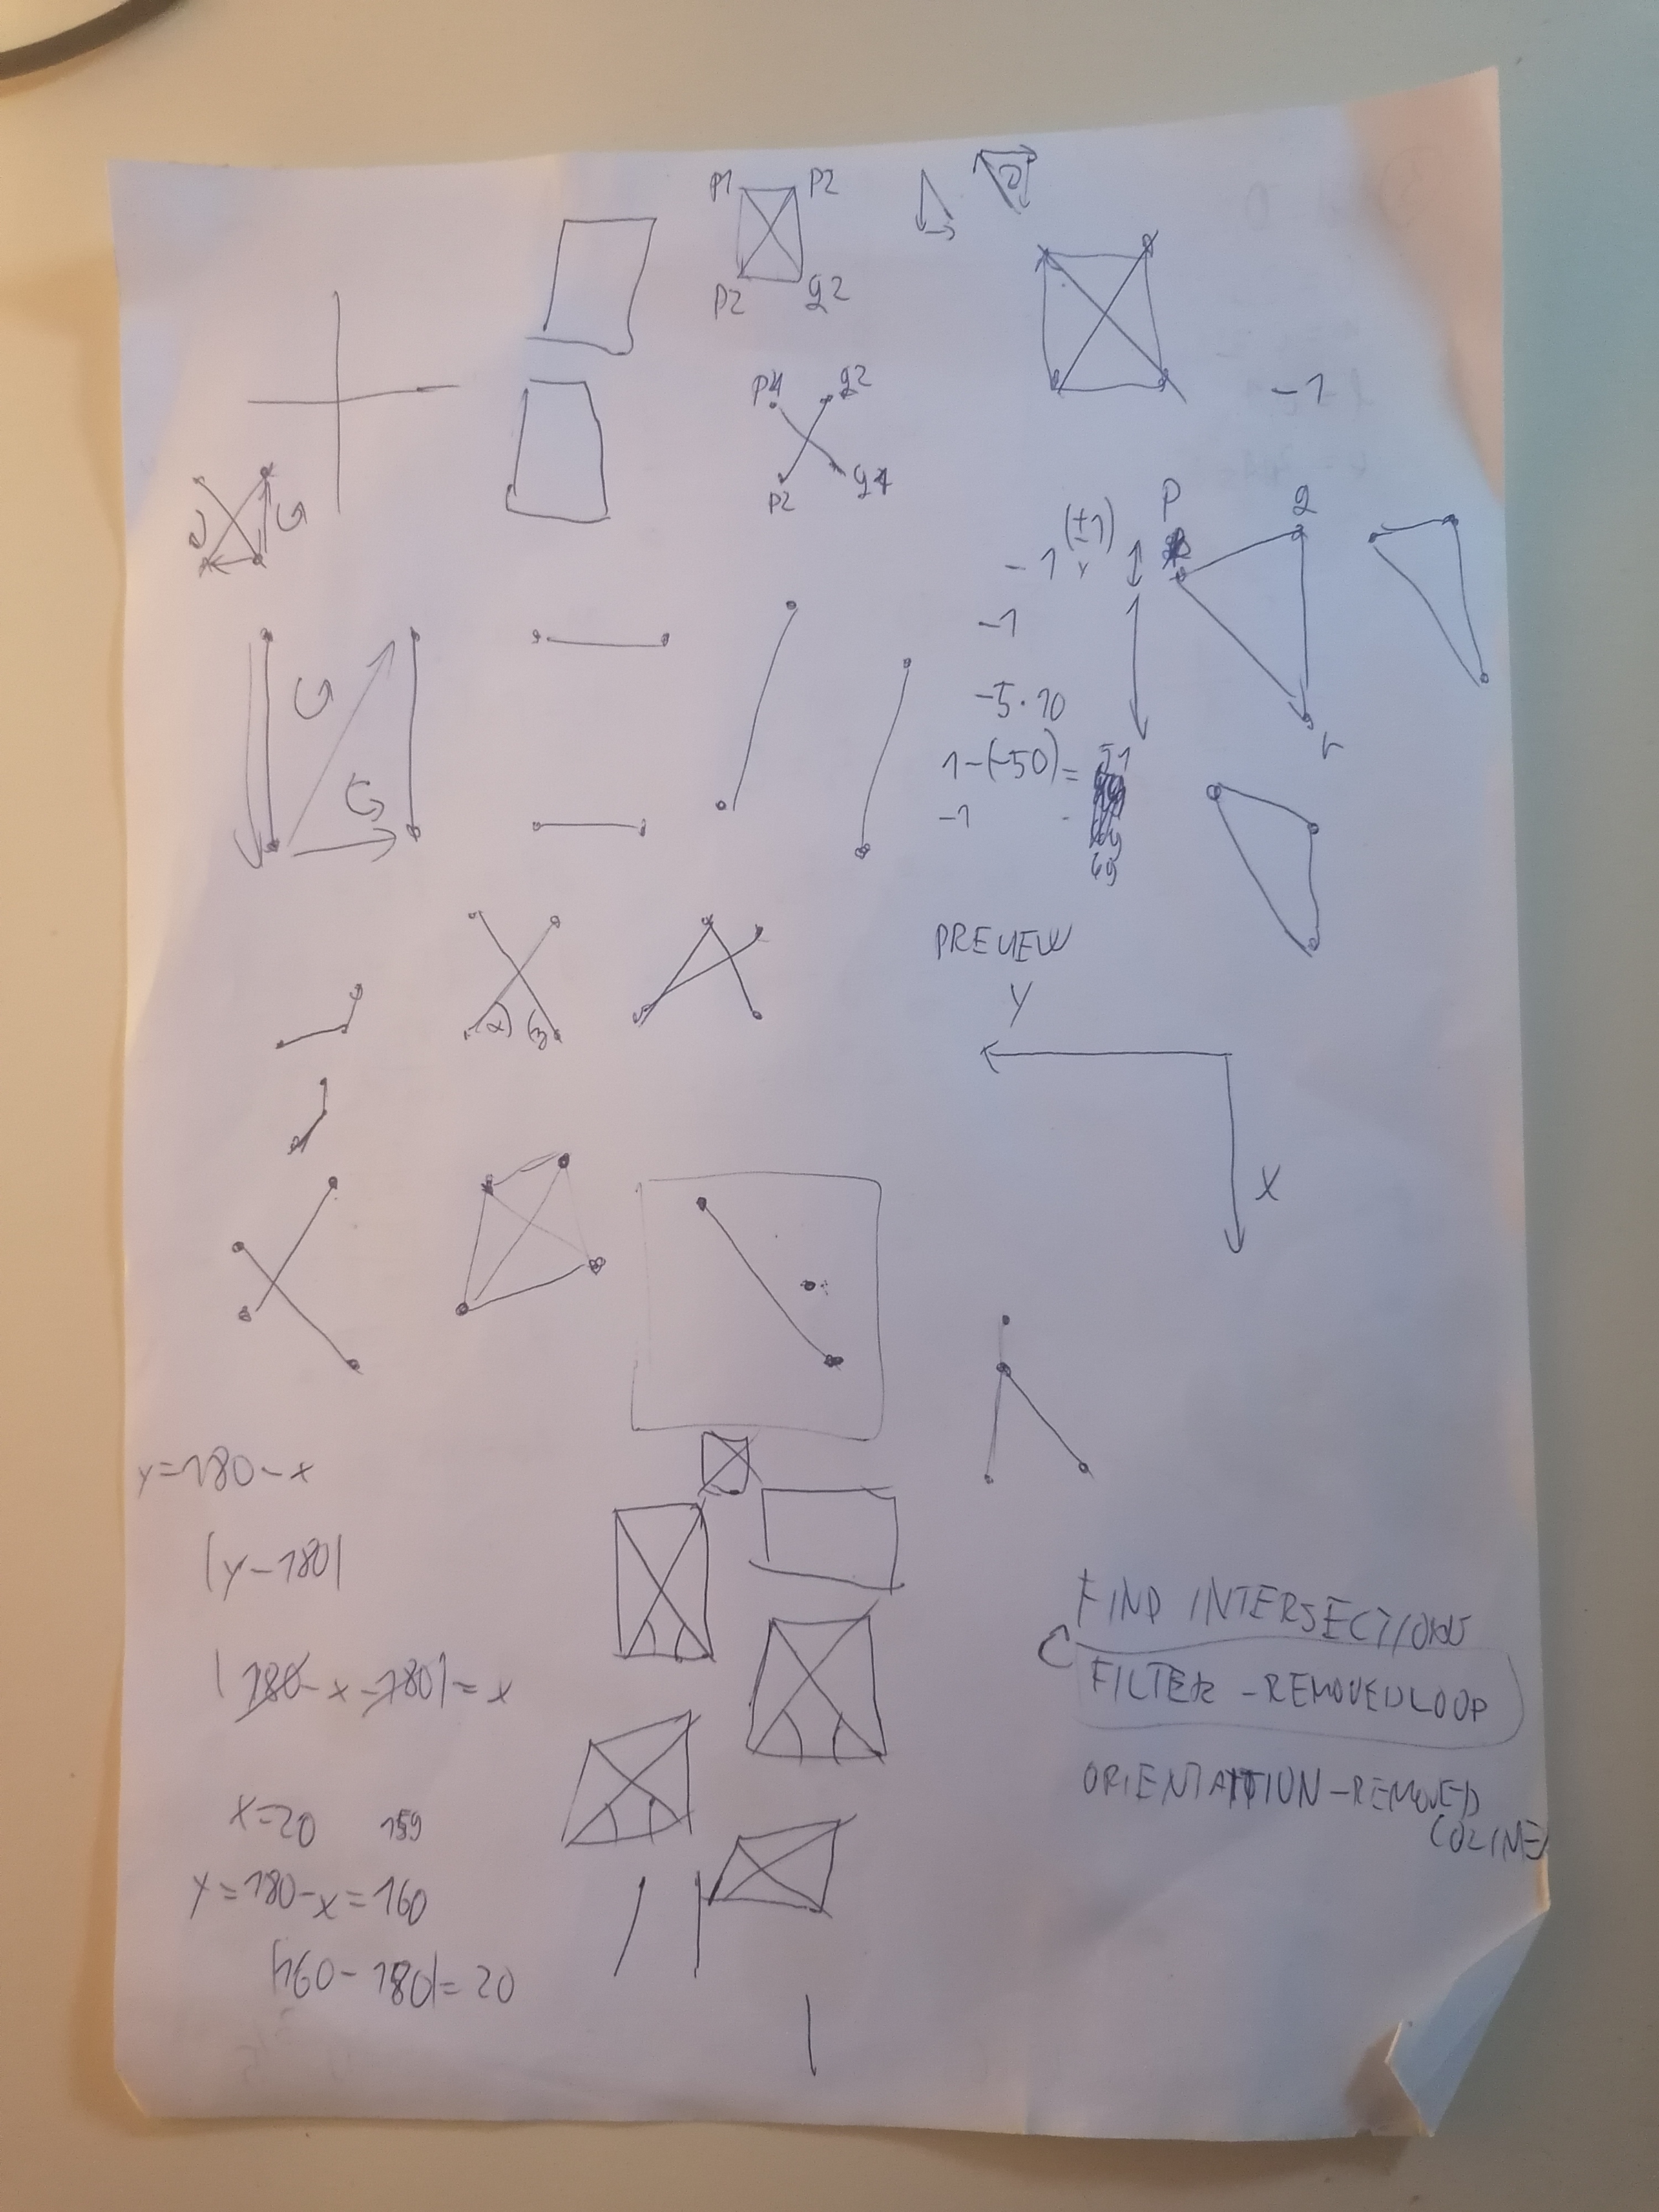 P1 P2
P2 q2
-1
P1 q2
P2 q1
P q
r
-1 (±1)
-1
-5·10
1-(-50)= 51
-1
69
PREVIEW
Y
X
α
y=180-x
|y-180|
|180-x-180|=x
x=20 159
y=180-x=160
|160-180|=20
FIND INTERSECTIONS
FILTER -REMOVED LOOP
ORIENTATTION-REMOVED